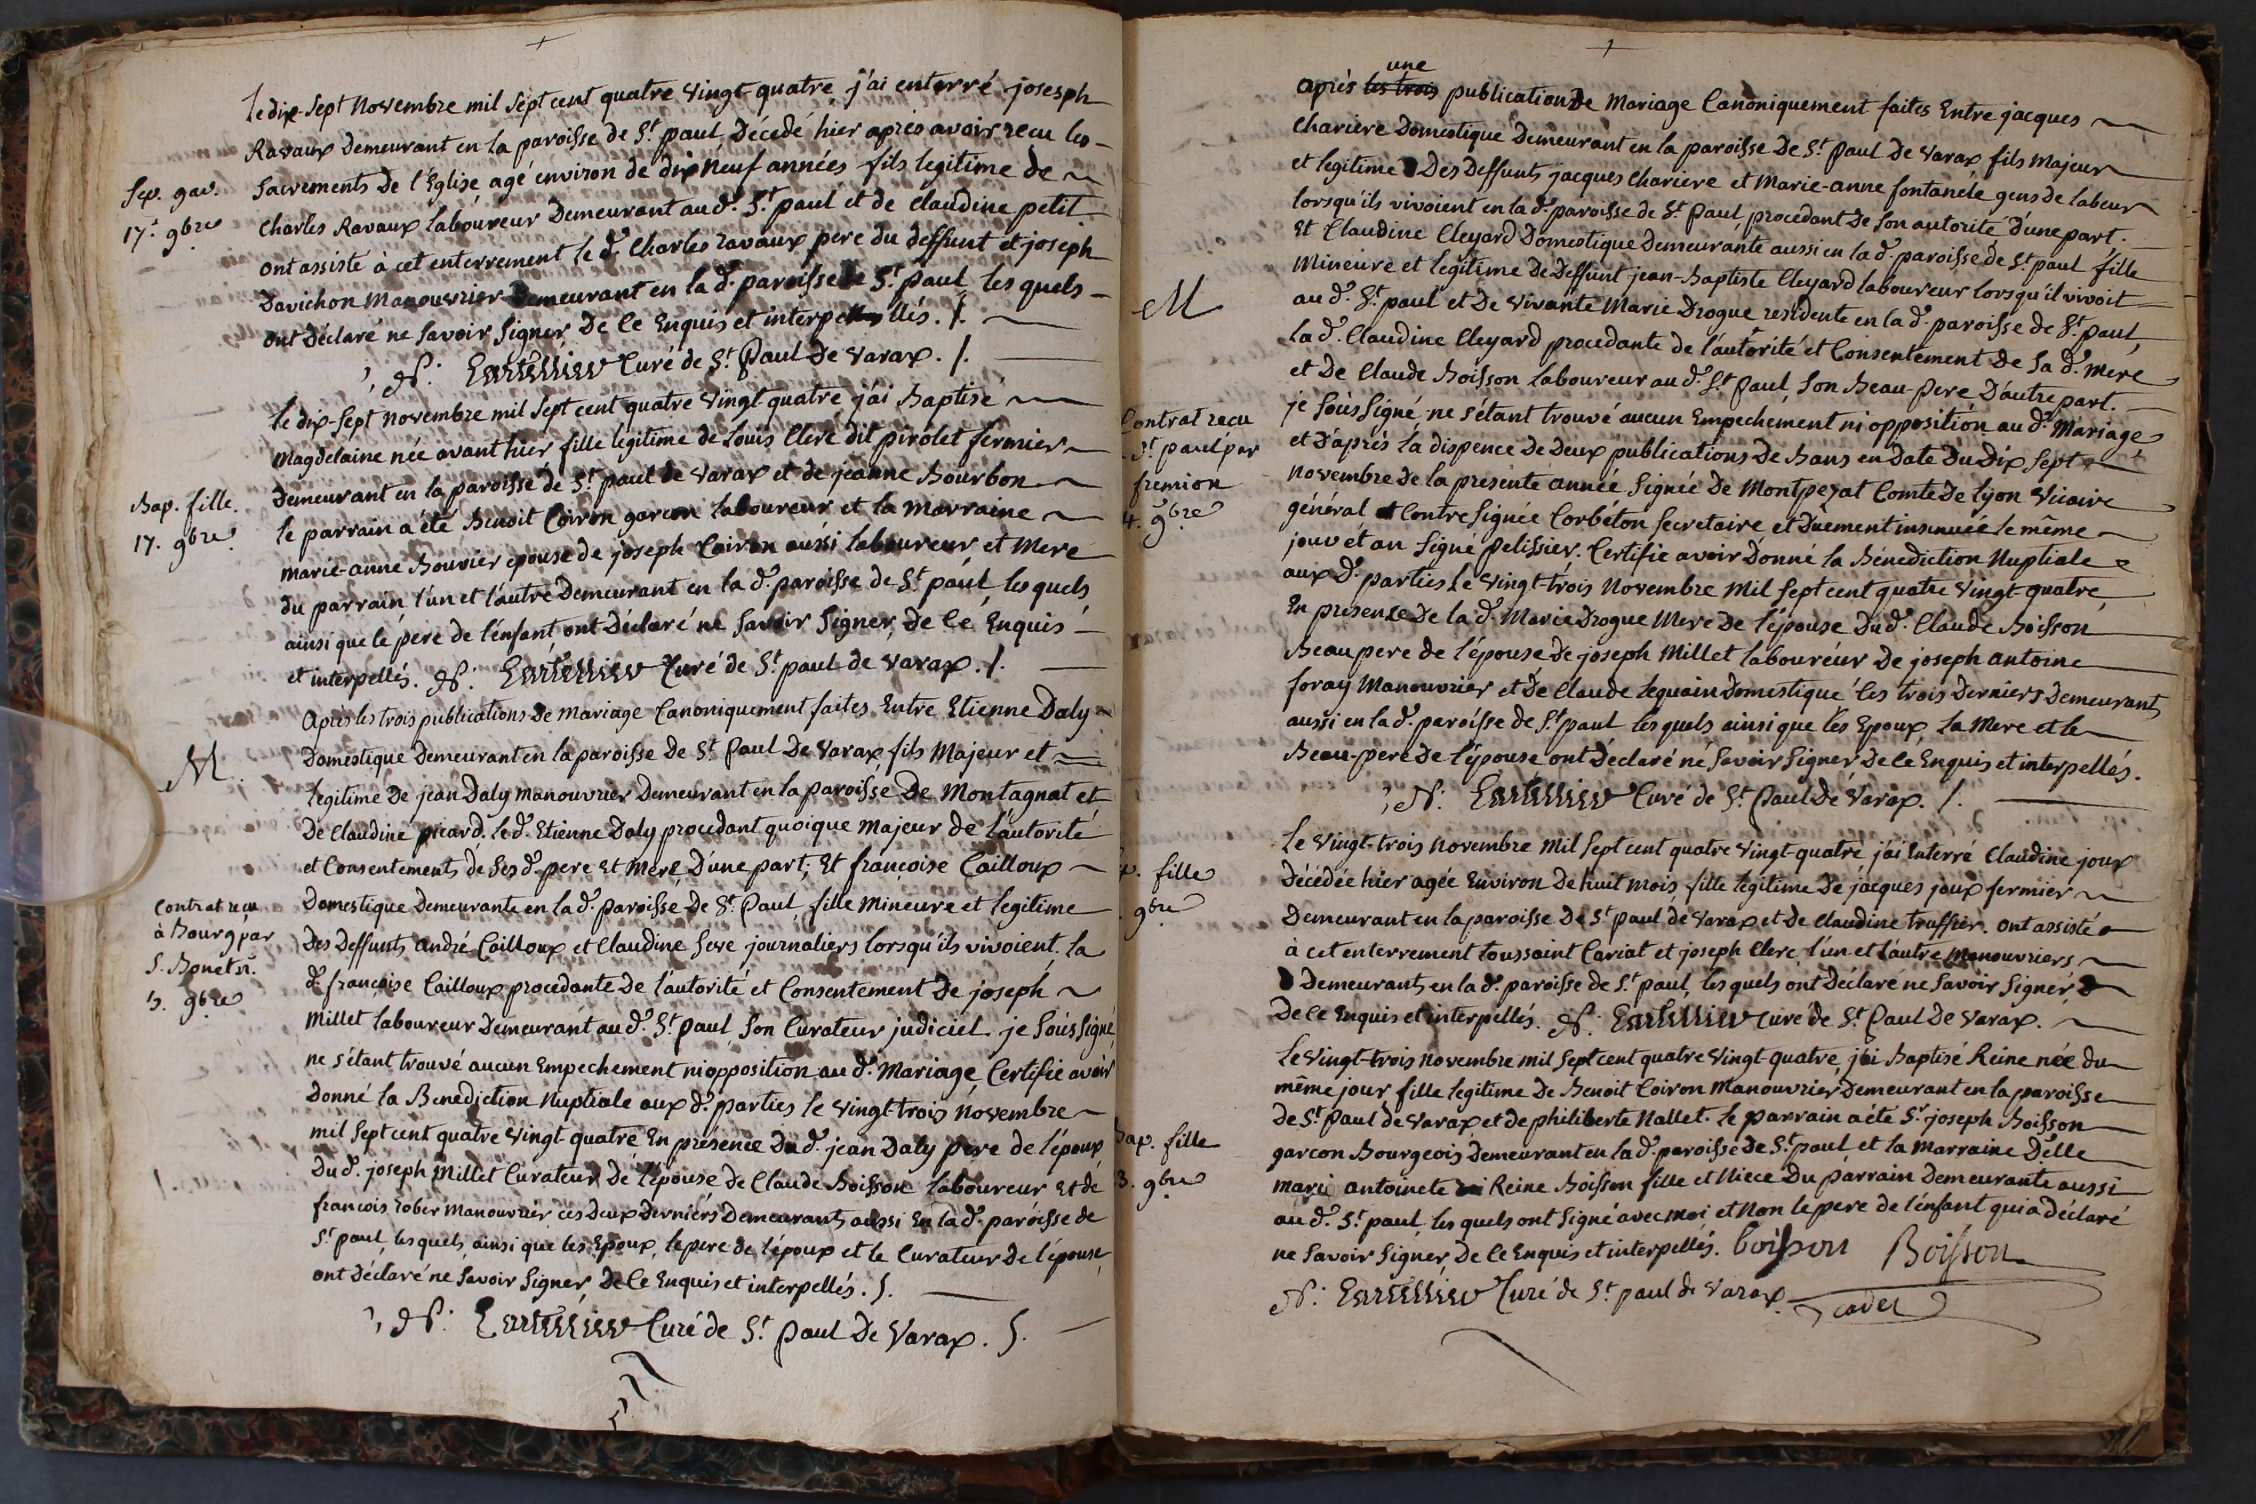 le dix-sept novembre mil sept cent quatre vingt quatre j'ai enterré josesph
Ravaux Demeurant en la paroisse de St. paul Décédé hier apres avoir recu les
Sep. gar.
sacrements de l'Eglise agé environ de dix neuf années fils legitime de
17. 9bre
Charles Ravaux laboureur Demeurant au d. St. paul et de claudine petit
ont assisté à cet enterrement le d. Charles ravaux pere du deffunt et joseph
Davichon Manouvrier Demeurant en la d. paroisse de St. Paul les quels
ont Déclaré ne savoir signer, De ce Enquis et interpellés. /.
N. Curé de St. Paul De Varax. /.
le dix-sept novembre mil sept cent quatre vingt quatre j'ai Baptisé
Magdelaine née avant hier fille legitime de Louis Clerc dit pirolet fermier
Bap. fille
Demeurant en la paroisse de St. paul de Varax et de jeanne Bourbon
17. 9bre
le parrain a été Benoit Coiron garcon laboureur et la marraine
marie-anne Bouvier epouse de joseph Coiron aussi laboureur et mere
du parrain l'un et l'autre Demeurant en la d. paroisse de St. paul les quels
ainsi que le pere de l'enfant ont Déclaré ne savoir signer, de ce Enquis
et interpellés. N. Curé de St. paul de varax. /.
Après les trois publications de mariage Canoniquement faites Entre Etienne Daly
M
Domestique Demeurant en la paroisse de St. Paul De Varax fils Majeur et
legitime de jean Daly manouvrier Demeurant en la paroisse De Montagnat et
De Claudine picard. le d. Etienne Daly procedant quoique majeur de l'autorité
et Consentements de ses d. pere et Mere D'une part, Et françoise Cailloux
Contrat recu
à Bourg par
S. Bonet
9bre
Domestique Demeurante en la d. paroisse de St. Paul, fille mineure et legitime
Des Deffunts andré Cailloux et Claudine seve journaliers lorsqu'ils vivoient. la
d. françoise Cailloux procedante de l'autorité et Consentement De joseph
Millet laboureur Demeurant au d. St. paul son Curateur judiciel. je soussigné
ne s'étant trouvé aucun Empechement ni opposition au d. Mariage Certifie avoir
Donné la Benediction Nuptiale aux d. parties le vingt-trois Novembre
mil sept cent quatre vingt quatre En presence Du d. jean Daly pere de l'époux
Du d. joseph Millet Curateur De l'épouse de Claude Boisson laboureur et de
françois rober manouvrier ces Deux Derniers Demeurants aussi En la d. paroisse de
St. paul, les quels, ainsi que les Epoux, le pere de l'époux et le Curateur de l'épouse
ont Déclaré ne savoir signer, De ce Enquis et interpellés. /.
N. Curé de St. Paul De Varax. /.
une
Apriès les trois publications De Mariage Canoniquement faites Entre jacques
chariere Domestique Demeurant en la paroisse De St. Paul de Varax fils Majeur
et legitime Des Deffunts jacques chariere et Marie-anne fontanele gens de labeur
lorsqu'ils vivoient en la d. paroisse de St. Paul, procedant de son autorité D'une part.
Et Claudine Cleyard Domestique Demeurante aussi en la d. paroisse de St. paul fille
Mineure et legitime De Deffunt jean-Baptiste Cleyard laboureur lorsqu'il vivoit
M
au d. St. paul et De vivante Marie Drogue residente en la d. paroisse de St. Paul,
la d. Claudine Cleyard procedante de l'autorité et Consentement de sa d. Mere
et De Claude Boisson laboureur au d. St. Paul, son Beau-pere D'autre part.
Contrat recu
St. paul par
fremion
4. 9bre
je soussigné ne s'étant trouvé aucun Empechement ni opposition au d. Mariage
et D'après la dispence De Deux publications De Bans en Date Du Dix sept
novembre de la presente année signée De Montpezat Comte De lyon Vicaire
général et Contresignée Corbéton secretaire et Duement insinuée le même
jour et an signé pelissier. Certifie avoir Donné la Bénediction Nuptiale
aux d. parties le vingt-trois Novembre Mil sept cent quatre vingt quatre
En presence De la d. Marie Drogue Mere De l'épouse Du d. Claude Boisson
Beau pere de l'épouse De joseph Millet laboureur De joseph antoine
foray Manouvrier et De Claude lequain Domestique les trois Derniers Demeurants
aussi en la d. paroisse de St. paul les quels ainsi que les Epoux, la Mere et le
Beau-pere de l'épouse ont Déclaré ne savoir signer De ce Enquis et interpellés.
N. Curé de St. Paul de Varax. /.
Le vingt-trois novembre mil sept cent quatre vingt-quatre j'ai Enterré Claudine joux
fille
Décédée hier agée Environ de huit mois fille legitime De jacques joux fermier
9bre
Demeurant en la paroisse De St. paul de Varax et de Claudine truffier. ont assisté
à cet enterrement toussaint Cariat et joseph Clerc, l'un et l'autre Manouvriers
Demeurants en la d. paroisse de St. paul, les quels ont Déclaré ne savoir signer
De ce Enquis et interpellés. N. Curé de St. Paul De Varax.
Le vingt-trois novembre mil sept cent quatre vingt quatre, j'ai Baptisé Reine née du
même jour fille legitime De Benoit Coiron Manouvrier Demeurant en la paroisse
de St. Paul de Varax et de philiberte Nallet. le parrain a été Sr. joseph Boisson
Bap. fille
garcon Bourgeois Demeurant en la d. paroisse de St. paul et la marraine Delle
3. 9bre
marie antoinete Reine Boisson fille et Niece Du parrain Demeurante aussi
au d. St. paul, les quels ont signé avec moi et Non le pere de l'enfant qui a Déclaré
ne savoir signer, De ce Enquis et interpellés. boisson Boisson
N. Curé de St. paul de Varax. cadet